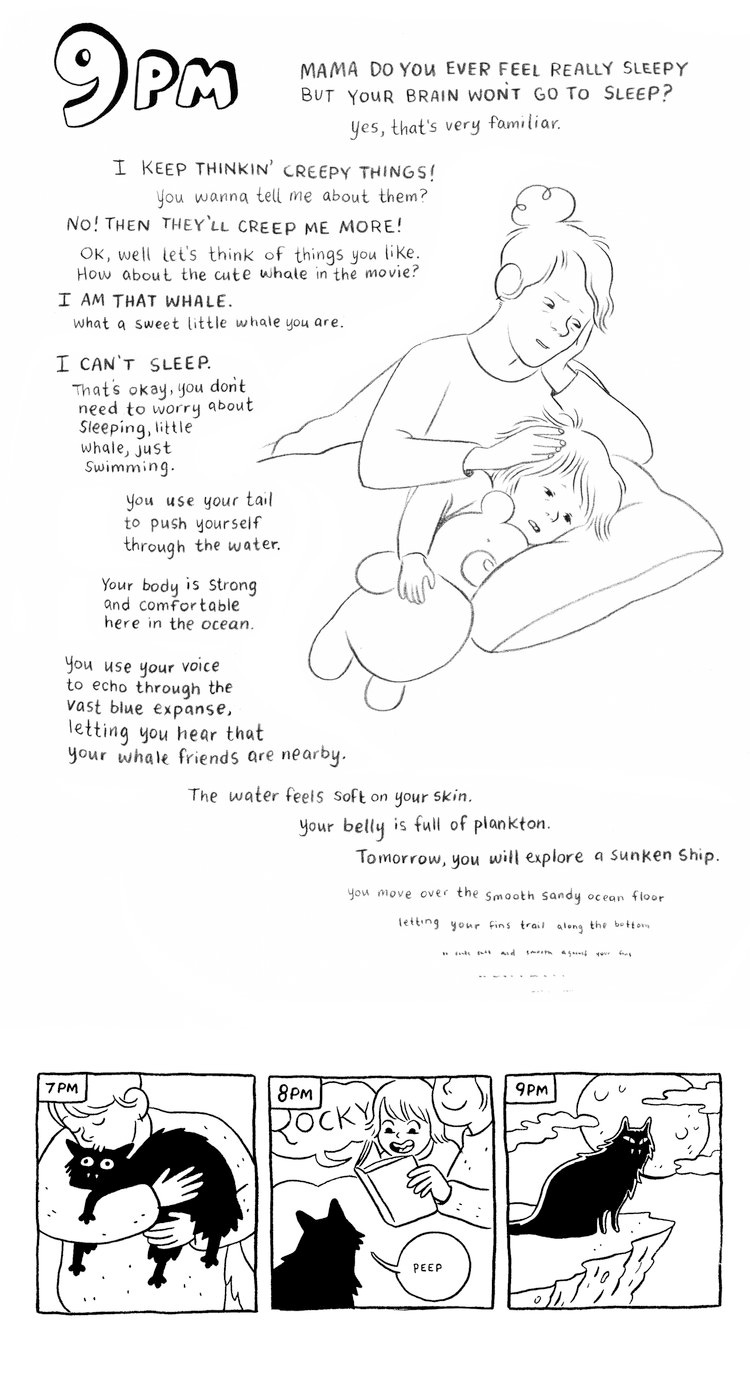 9PM
MAMA DO YOU EVER FEEL REALLY SLEEPY
BUT YOUR BRAIN WON'T GO TO SLEEP?
yes, that's very familiar.
I KEEP THINKIN' CREEPY THINGS!
you wanna tell me about them?
NO! THEN THEY'LL CREEP ME MORE!
OK, well let's think of things you like.
How about the cute whale in the movie?
I AM THAT WHALE.
what a sweet little whale you are.
I CAN'T SLEEP.
That's okay, you don't
need to worry about
sleeping, little
whale, just
swimming.
you use your tail
to push yourself
through the water.
Your body is strong
and comfortable
here in the ocean.
you use your voice
to echo through the
vast blue expanse,
letting you hear that
your whale friends are nearby.
The water feels soft on your skin.
your belly is full of plankton.
Tomorrow, you will explore a sunken ship.
you move over the smooth sandy ocean floor
letting your fins trail along the bottom
and smooth against your
7PM
8PM
ROCKY
PEEP
9PM